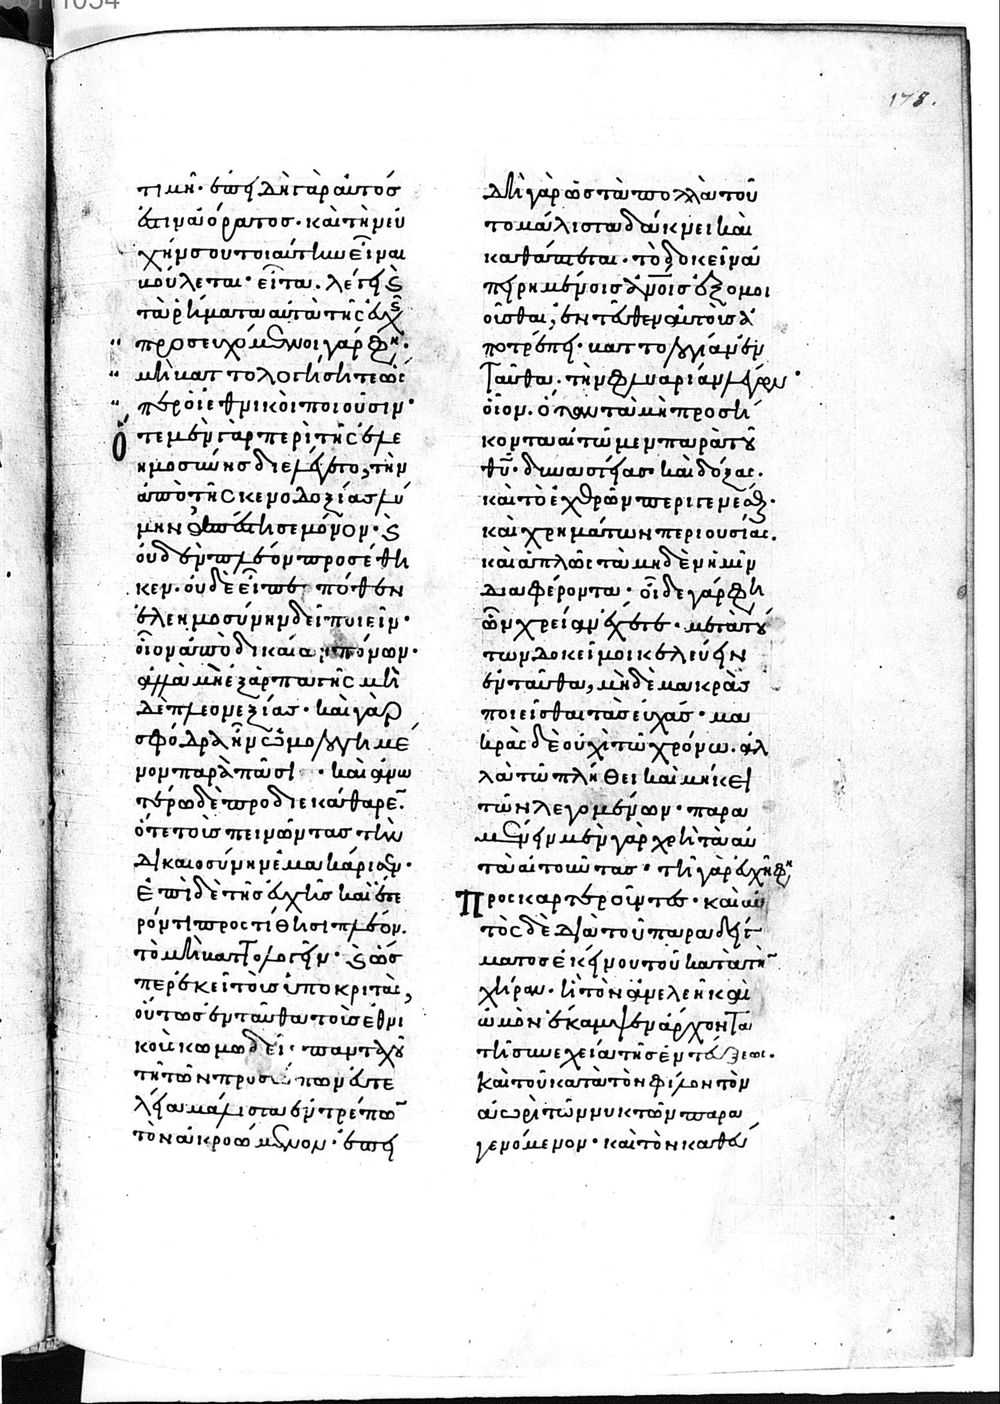 178.
τιμῆ· ἐπει δὴ γὰρ αὐτός
ἐστιν ἀόρατος· καὶ τὴν εὐ
χήν σου τοιαύτην εἶναι
βούλεται· εἶτα λέγει καὶ
τὰ ῥήματα αὐτὰ τῆς εὐχῆς
προσευχόμενοι γάρ φησιν·
μὴ βαττολογήσητε ὡς
περ οἱ ἐθνικοὶ ποιοῦσιν·
Ὅτε μὲν γὰρ περὶ τῆς ἐλε
ημοσύνης διελέγετο, τὴν
ἀπὸ τῆς κενοδοξίας λύ
μην ἀπέστησε μόνον· καὶ
οὐδὲν πλέον προσέθη
κεν· οὐδὲ εἶπε πόθεν
ἐλεημοσύνην δεῖ ποιεῖν·
οἷον ἀπὸ δικαίων πόνων·
ἀλλὰ μὴ ἐξ ἁρπαγῆς μὴ
δὲ πλεονεξίας· καὶ γὰρ
σφόδρα ἦν ὡμολογημέ
νον παρὰ πᾶσι· καὶ ἀνω
τέρω δὲ προδιεκάθαρε
ὅτε τοὺς πεινῶντας τὴν
δικαιοσύνην ἐμακάρισεν·
Ἐπὶ δὲ τῆς εὐχῆς καὶ ἕτε
ρόν τι προστίθησι πλέον·
τὸ μὴ βαττολογεῖν· καὶ ὡς
περ ἐκεῖ τοὺς ὑποκριτάς,
οὕτως ἐνταῦθα τοὺς ἐθνι
κοὺς κωμωδεῖ· πανταχοῦ
τῇ τῶν προσώπων εὐτε
λείᾳ μάλιστα ἐντρέπων
τὸν ἀκροώμενον· ἐπει
δὴ γὰρ ὡς τὰ πολλὰ τοῦ
το μάλιστα δάκνει καὶ
καθάπτεται· τὸ δοκεῖν ἀ
περριμμένοις ἀνθρώποις ἐξομοι
οῦσθαι, ἐντεῦθεν αὐτοὺς ἀ
ποτρέπει· βαττολογίαν ἐν
ταῦθα τὴν φλυαρίαν λέγων·
οἷον· ὅταν τὰ μὴ προσή
κοντα αἰτῶμεν παρὰ τοῦ
θεοῦ· δυναστείας καὶ δόξας·
καὶ τὸ ἐχθρῶν περιγενέσθαι·
καὶ χρημάτων περιουσίας·
καὶ ἁπλῶς τὰ μηδὲν ἡμῖν
διαφέροντα· οἶδε γάρ φησιν
ὧν χρείαν ἔχετε· μετὰ τού
των δοκεῖ μοι κελεύειν
ἐνταῦθα, μηδὲ μακρὰς
ποιεῖσθαι τὰς εὐχάς· μα
κρὰς δὲ οὐχὶ τῷ χρόνω· ἀλ
λὰ τῷ πλήθει καὶ μήκει
τῶν λεγομένων· παρα
μένειν μὲν γὰρ χρὴ τὰ αὐ
τὰ αἰτοῦντας· τῇ γὰρ εὐχῆ φησιν
προσκαρτεροῦντες· καὶ αὐ
τὸς δὲ διὰ τοῦ παραδείγ
ματος ἐκείνου τοῦ κατὰ τὴν
χήραν· ἣ τὸν ἀνελεῆ καὶ
ὠμὸν ἔκαμψεν ἄρχοντα
τῇ συνεχείᾳ τῆς ἐντεύξεως·
Καὶ τοῦ κατὰ τὸν φίλον τὸν
ἀωρὶ τῶν νυκτῶν παρα
γενόμενον· καὶ τὸν καθεύ